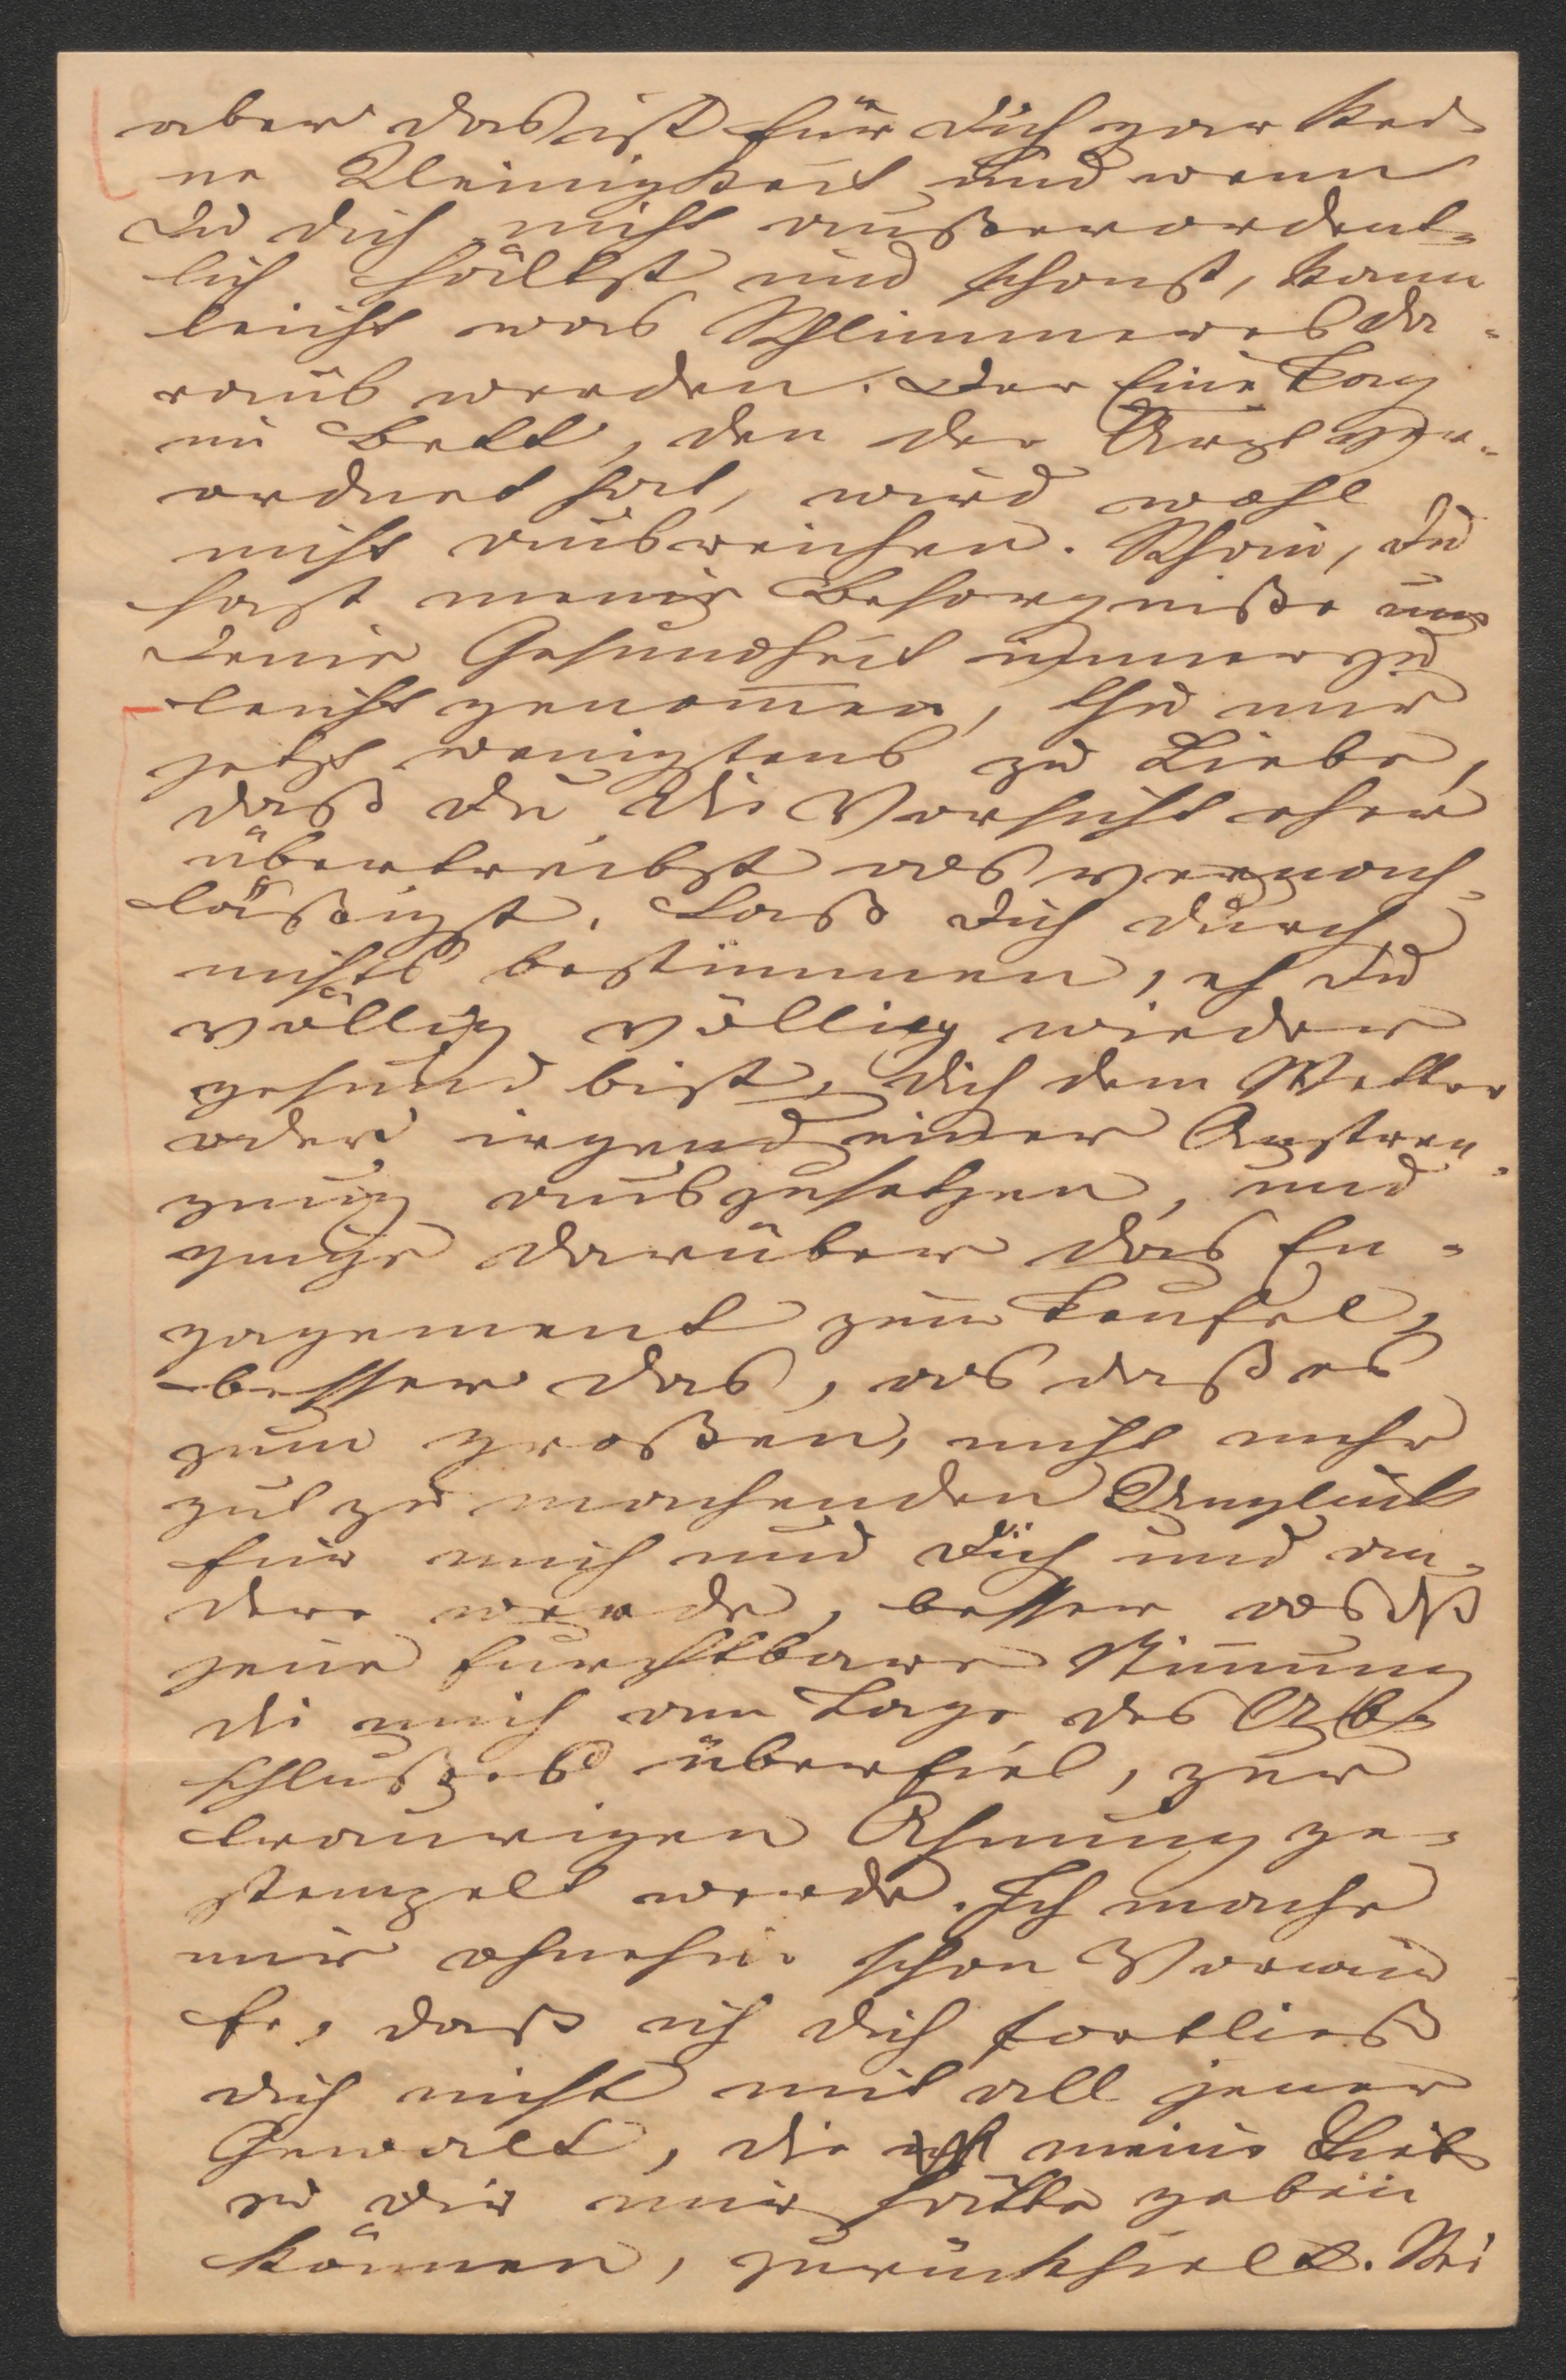 aber das ist für Dich gar kei-
ne Kleinigkeit und wenn
Du dich nicht außerordent-
lich hältst und schonst, kann
leicht was Schlimmeres da-
raus werden. Der Eine Tag
im Bett, den der Arzt ver-
ordnet hat, wird wohl
nicht ausreichen. Du
hast meine Besorgniße um
Deine Gesundheit immer zu
leicht genom̅en, thu mir
jetzt wenigstens zu Liebe,
daß Du die Vorsicht eher
übertreibst als vernach-
läßigst. Laß Dich durch
nichts bestimmen, eh Du
völlig völlig wieder
gesund bist, Dich dem Wetter
oder irgend einer Anstren-
gung auszusetzen, und
ginge darüber das En-
gagement zum Teufel,
besser das, als daß es
zum großen, nicht mehr
gut zu machenden Unglück
für mich und Dich und an-
dere werde, besser als dß
jene furchtbare Stim̅ung
die mich am Tage des Ab-
schlußes überfiel, zur
traurigen Ahnung ge-
stempelt werde. Ich mache
mir ohnehin schon Vorwür
fe, daß ich dich fortließ
dich nicht mit all jener
Gewalt, die meine Liebe
zu dir mir hätte geben
können, zurückhielt. Sei